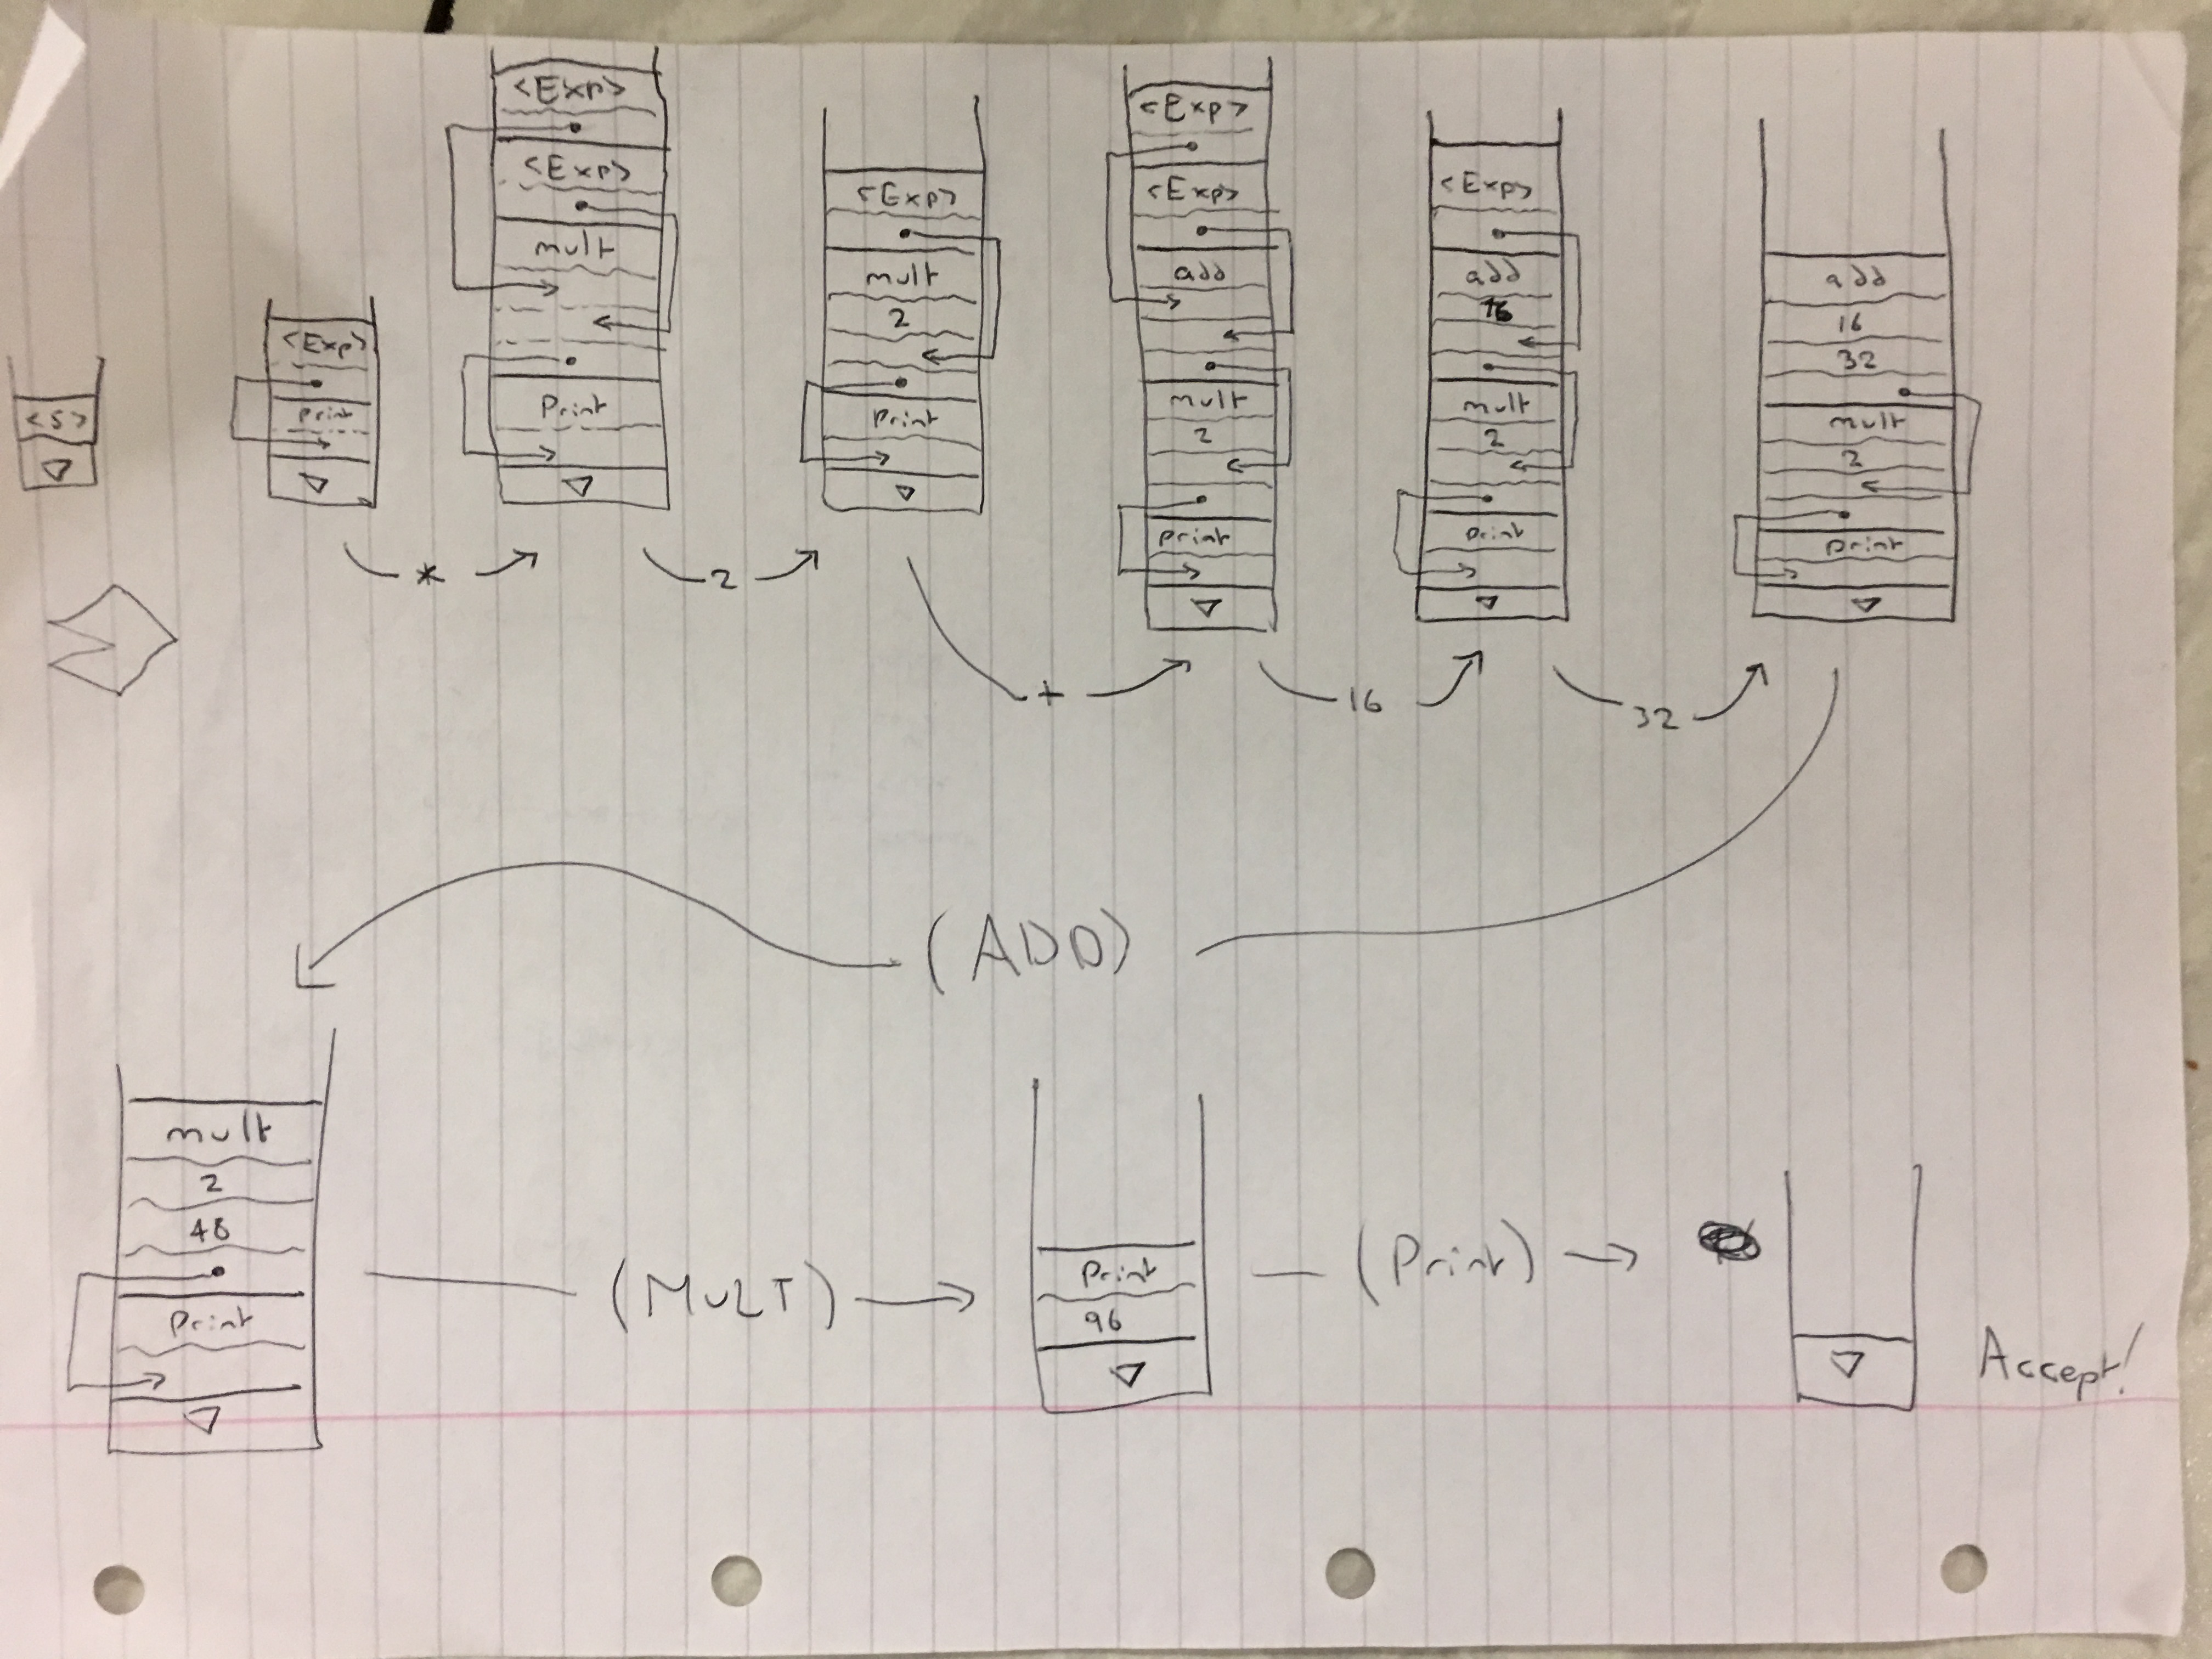 <S>
▽
<Exp>
Print
▽
<Exp>
<Exp>
mult
Print
▽
<Exp>
mult
2
Print
▽
<Exp>
<Exp>
add
mult
2
print
▽
<Exp>
add
16
mult
2
print
▽
add
16
32
mult
2
print
▽
*
2
+
16
32
(ADD)
mult
2
48
Print
▽
(MULT)
Print
96
▽
(Print)
▽
Accept!